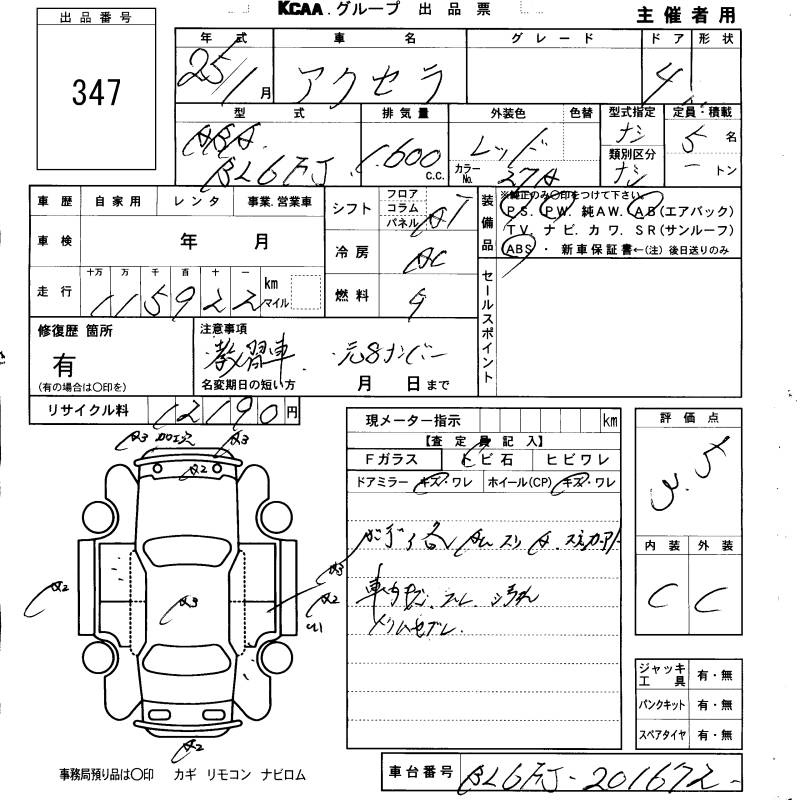 KCAA.グループ 出品票
主催者用
出品番号
347
年式 車名 グレード ドア 形状
25/1月 アクセラ 4
型式 排気量 外装色 色替 型式指定 定員・積載
DBA BL6FJ 1.600 c.c. レッド カラーNo. 27A ナシ 類別区分 ナシ 5名 ートン
車歴 自家用 レンタ 事業.営業車
車検 年 月
走行 十万 万 千 百 十 一 km マイル
115922
シフト フロア コラム パネル AT
冷房 AC
燃料 G
装備品 ※純正のみ〇印をつけて下さい。
PS. PW. 純AW. AB(エアバック)
TV. ナビ. カワ. SR(サンルーフ)
ABS ・ 新車保証書←(注) 後日送りのみ
セールスポイント
修復歴 箇所
有
(有の場合は〇印を)
注意事項
教習車 元8ナンバー
名変期日の短い方 月 日まで
リサイクル料 12190 円
現メーター指示 km
【査定員記入】
Fガラス トビ石 ヒビワレ
ドアミラー キズ・ワレ ホイール(CP) キズ・ワレ
A3 加工穴 A3
A2
A2
A3
A3
A2
U1
A2
ボディ各
車内
評価点
3.5
内装 外装
C C
ジャッキ工具 有・無
パンクキット 有・無
スペアタイヤ 有・無
事務局預り品は〇印 カギ リモコン ナビロム
車台番号 BL6FJ-201672-